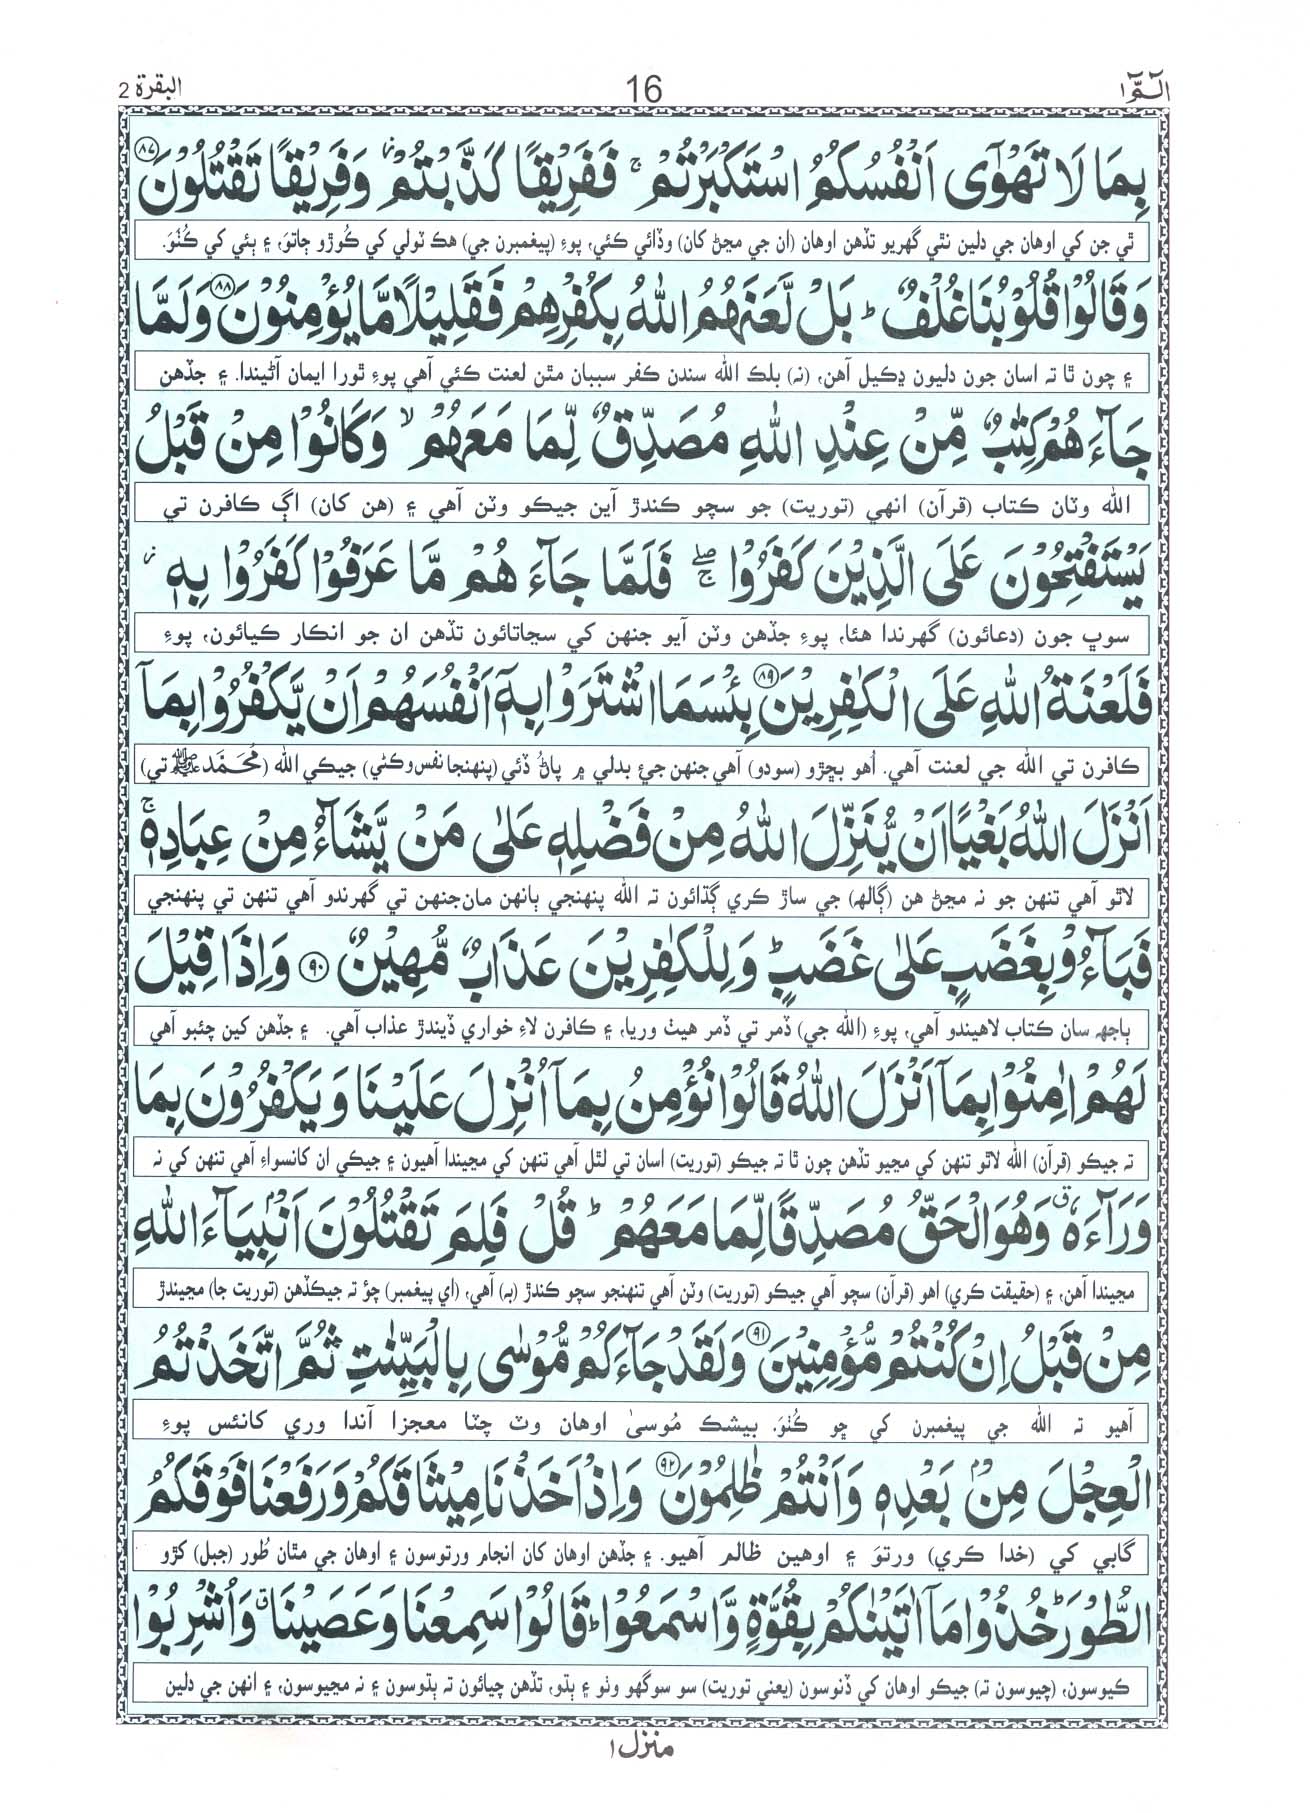 الٓمّٓ ۱
16
البقرة 2
بِمَا لَا تَهْوٰٓى اَنْفُسُكُمُ اسْتَكْبَرْتُمْ ۚ فَفَرِيْقًا كَذَّبْتُمْ ؗ وَفَرِيْقًا تَقْتُلُوْنَ ﴿۸۷﴾
ٿي جن کي اوهان جي دلين نٿي گھريو تڏهن اوهان (ان جي مڃڻ کان) وڏائي ڪئي، پوءِ (پيغمبرن جي) هڪ ٽولي کي ڪُوڙو ڄاتوَ، ۽ ٻئي کي ڪُٺوَ.
وَقَالُوْا قُلُوْبُنَا غُلْفٌ ؕ بَلْ لَّعَنَهُمُ اللّٰهُ بِكُفْرِهِمْ فَقَلِيْلًا مَّا يُؤْمِنُوْنَ ﴿۸۸﴾ وَلَمَّا
۽ چون ٿا تہ اسان جون دليون ڍڪيل آهن، (نہ) بلڪ الله سندن ڪفر سببان مٿن لعنت ڪئي آهي پوءِ ٿورا ايمان آڻيندا. ۽ جڏهن
جَآءَهُمْ كِتٰبٌ مِّنْ عِنْدِ اللّٰهِ مُصَدِّقٌ لِّمَا مَعَهُمْ ۙ وَكَانُوْا مِنْ قَبْلُ
الله وٽان ڪتاب (قرآن) انهي (توريت) جو سچو ڪندڙ آين جيڪو وٽن آهي ۽ (هن کان) اڳ ڪافرن تي
يَسْتَفْتِحُوْنَ عَلَى الَّذِيْنَ كَفَرُوْا ۚۖ فَلَمَّا جَآءَهُمْ مَّا عَرَفُوْا كَفَرُوْا بِهٖ ؗ
سوڀ جون (دعائون) گھرندا هئا، پوءِ جڏهن وٽن آيو جنهن کي سڃاتائون تڏهن ان جو انڪار ڪيائون، پوءِ
فَلَعْنَةُ اللّٰهِ عَلَى الْكٰفِرِيْنَ ﴿۸۹﴾ بِئْسَمَا اشْتَرَوْا بِهٖٓ اَنْفُسَهُمْ اَنْ يَّكْفُرُوْا بِمَآ
ڪافرن تي الله جي لعنت آهي. اُهو بڇڙو (سودو) آهي جنهن جيءِ بدلي ۾ پاڻُ ڏئي (پنهنجا نفس وڪڻي) جيڪي الله (مُحَمَّد ﷺ تي)
اَنْزَلَ اللّٰهُ بَغْيًا اَنْ يُّنَزِّلَ اللّٰهُ مِنْ فَضْلِهٖ عَلٰى مَنْ يَّشَآءُ مِنْ عِبَادِهٖ ۚ
لاٿو آهي تنهن جو نہ مڃڻ هن (ڳالهہ) جي ساڙ ڪري ڳڌائون تہ الله پنهنجي ٻانهن مان جنهن تي گھرندو آهي تنهن تي پنهنجي
فَبَآءُوْ بِغَضَبٍ عَلٰى غَضَبٍ ؕ وَلِلْكٰفِرِيْنَ عَذَابٌ مُّهِيْنٌ ﴿۹۰﴾ وَاِذَا قِيْلَ
ٻاجهہ سان ڪتاب لاهيندو آهي، پوءِ (الله جي) ڏمر تي ڏمر هيٺ وريا، ۽ ڪافرن لاءِ خواري ڏيندڙ عذاب آهي. ۽ جڏهن کين چئبو آهي
لَهُمْ اٰمِنُوْا بِمَآ اَنْزَلَ اللّٰهُ قَالُوْا نُؤْمِنُ بِمَآ اُنْزِلَ عَلَيْنَا وَيَكْفُرُوْنَ بِمَا
تہ جيڪو (قرآن) الله لاٿو تنهن کي مڃيو تڏهن چون ٿا تہ جيڪو (توريت) اسان تي لٿل آهي تنهن کي مڃيندا آهيون ۽ جيڪي ان کانسواءِ آهي تنهن کي نہ
وَرَآءَهٗ ۗ وَهُوَ الْحَقُّ مُصَدِّقًا لِّمَا مَعَهُمْ ؕ قُلْ فَلِمَ تَقْتُلُوْنَ اَنْۢبِيَآءَ اللّٰهِ
مڃيندا آهن، ۽ (حقيقت ڪري) اهو (قرآن) سچو آهي جيڪو (توريت) وٽن آهي تنهنجو سچو ڪندڙ (بہ) آهي، (اي پيغمبر) چؤ تہ جيڪڏهن (توريت جا) مڃيندڙ
مِنْ قَبْلُ اِنْ كُنْتُمْ مُّؤْمِنِيْنَ ﴿۹۱﴾ وَلَقَدْ جَآءَكُمْ مُّوْسٰى بِالْبَيِّنٰتِ ثُمَّ اتَّخَذْتُمُ
آهيو تہ الله جي پيغمبرن کي ڇو ڪُٺوَ. بيشڪ مُوسىٰ اوهان وٽ چٽا معجزا آندا وري کانئس پوءِ
الْعِجْلَ مِنْۢ بَعْدِهٖ وَاَنْتُمْ ظٰلِمُوْنَ ﴿۹۲﴾ وَاِذْ اَخَذْنَا مِيْثَاقَكُمْ وَرَفَعْنَا فَوْقَكُمُ
گابي کي (خدا ڪري) ورتوَ ۽ اوهين ظالم آهيو. ۽ جڏهن اوهان کان انجام ورتوسون ۽ اوهان جي مٿان طُور (جبل) کڙو
الطُّوْرَ ؕ خُذُوْا مَآ اٰتَيْنٰكُمْ بِقُوَّةٍ وَّاسْمَعُوْا ؕ قَالُوْا سَمِعْنَا وَعَصَيْنَا ۗ وَاُشْرِبُوْا
ڪيوسون، (چيوسون تہ) جيڪو اوهان کي ڏنوسون (يعني توريت) سو سوگھو وٺو ۽ ٻڌو، تڏهن چيائون تہ ٻڌوسون ۽ نہ مڃيوسون، ۽ انهن جي دلين
منزل ۱